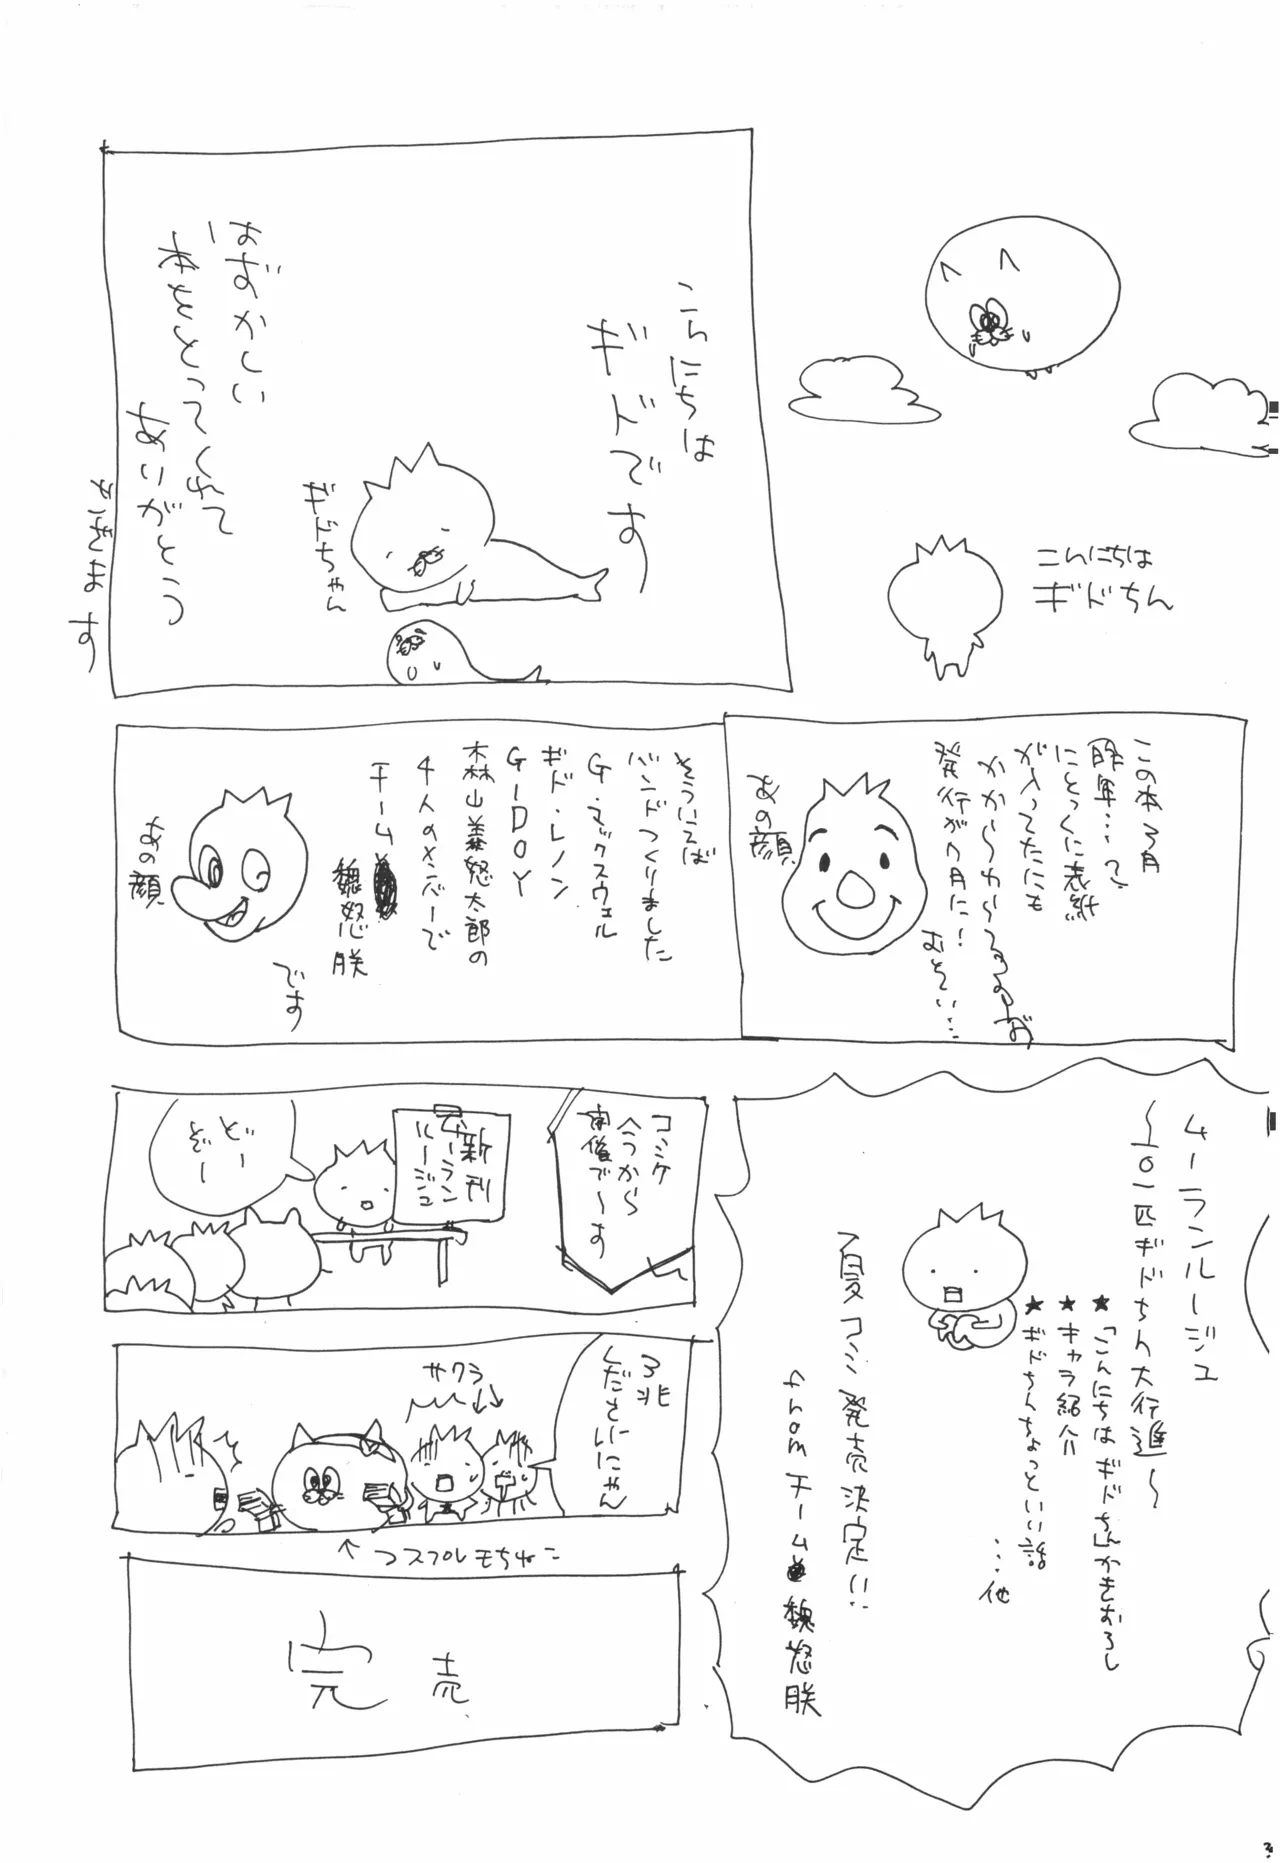 こんにちは
ギドちん
こんにちは
ギドです
ギドちゃん
はずかしい
本をとってくれて
ありがとう
ございます
この本3月
昨年…って
にとっくに表紙
が入ってたにも
かかわらず
発行が7月に!
むごい…
あの顔
そういえば
バンドつくりました
G・マックスウェル
ギド・レノン
G-DOY
森山義怒太郎の
4人のメンバーで
チーム
魏怒朕
です
あの顔
ムーランルージュ
〜101匹ギドちん大行進〜
★「こんにちはギドちん」かきおろし
★キャラ紹介
★ギドちんちょっといい話
…他
夏コミ発売決定!!
from チーム魏怒朕
コミケ
今から
開催で〜す
新刊
ムーラン
ルージュ
どー
ぞー
3兆
くださいにゃん
サクラ
↑コスプレもちねこ
完売